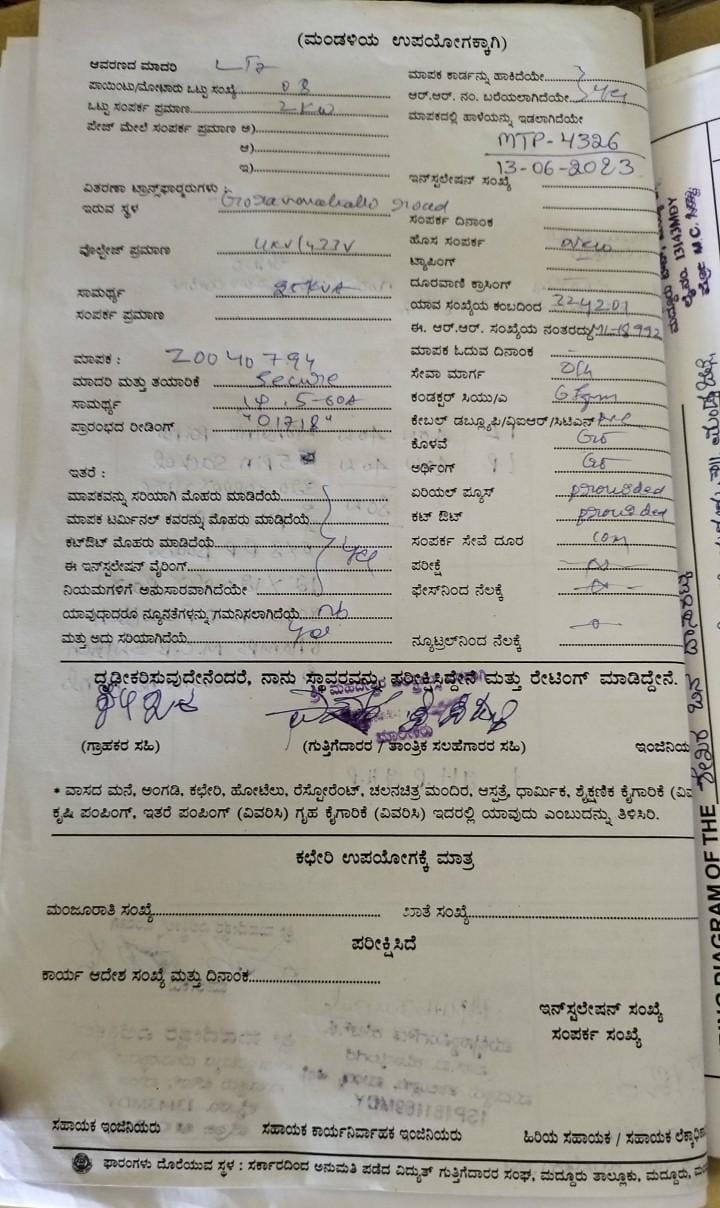 (ಮಂಡಳಿಯ ಉಪಯೋಗಕ್ಕಾಗಿ)
ಆವರಣದ ಮಾದರಿ
ಪಾಯಿಂಟು/ಮೋಟಾರು ಒಟ್ಟು ಸಂಖ್ಯೆ 08
ಒಟ್ಟು ಸಂಪರ್ಕ ಪ್ರಮಾಣ 2KW
ಪೇಜ್ ಮೇಲೆ ಸಂಪರ್ಕ ಪ್ರಮಾಣ ಅ)
ಆ)
ಇ)
ವಿತರಣಾ ಟ್ರಾನ್ಸ್‌ಫಾರ್‍ಮರುಗಳು :
ಇರುವ ಸ್ಥಳ road
ವೋಲ್ಟೇಜ್ ಪ್ರಮಾಣ
ಸಾಮರ್ಥ್ಯ 25KVA
ಸಂಪರ್ಕ ಪ್ರಮಾಣ
ಮಾಪಕ : Z0040794
ಮಾದರಿ ಮತ್ತು ತಯಾರಿಕೆ Secure
ಸಾಮರ್ಥ್ಯ 5-60A
ಪ್ರಾರಂಭದ ರೀಡಿಂಗ್ "01718"
ಇತರೆ :
ಮಾಪಕವನ್ನು ಸರಿಯಾಗಿ ಮೊಹರು ಮಾಡಿದೆಯೆ
ಮಾಪಕ ಟರ್ಮಿನಲ್ ಕವರನ್ನು ಮೊಹರು ಮಾಡಿದೆಯೆ
ಕಟ್‌ಔಟ್ ಮೊಹರು ಮಾಡಿದೆಯೆ
ಈ ಇನ್‌ಸ್ಟಲೇಷನ್ ವೈರಿಂಗ್ yes
ನಿಯಮಗಳಿಗೆ ಅನುಸಾರವಾಗಿದೆಯೇ
ಯಾವುದಾದರೂ ನ್ಯೂನತೆಗಳನ್ನು ಗಮನಿಸಲಾಗಿದೆಯೆ No
ಮತ್ತು ಅದು ಸರಿಯಾಗಿದೆಯೆ yes
ಮಾಪಕ ಕಾರ್ಡನ್ನು ಹಾಕಿದೆಯೇ
ಆರ್.ಆರ್. ನಂ. ಬರೆಯಲಾಗಿದೆಯೇ yes
ಮಾಪಕದಲ್ಲಿ ಹಾಳೆಯನ್ನು ಇಡಲಾಗಿದೆಯೇ
MTP-4326
13-06-2023
ಇನ್‌ಸ್ಟಲೇಷನ್ ಸಂಖ್ಯೆ
ಸಂಪರ್ಕ ದಿನಾಂಕ
ಹೊಸ ಸಂಪರ್ಕ New
ಟ್ಯಾಪಿಂಗ್
ದೂರವಾಣಿ ಕ್ರಾಸಿಂಗ್
ಯಾವ ಸಂಖ್ಯೆಯ ಕಂಬದಿಂದ 3242.01
ಈ. ಆರ್.ಆರ್. ಸಂಖ್ಯೆಯ ನಂತರದ್ದು
ಮಾಪಕ ಓದುವ ದಿನಾಂಕ
ಸೇವಾ ಮಾರ್ಗ O/H
ಕಂಡಕ್ಟರ್ ಸಿಯು/ಎ
ಕೇಬಲ್ ಡಬ್ಲ್ಯೂಪಿ/ವಿಐಆರ್/ಸಿಟಿಎಸ್
ಕೊಳವೆ
ಅರ್ಥಿಂಗ್
ಏರಿಯಲ್ ಪ್ಯೂಸ್ provided
ಕಟ್ ಔಟ್ provided
ಸಂಪರ್ಕ ಸೇವೆ ದೂರ
ಪರೀಕ್ಷೆ
ಫೇಸ್‌ನಿಂದ ನೆಲಕ್ಕೆ
ನ್ಯೂಟ್ರಲ್‌ನಿಂದ ನೆಲಕ್ಕೆ
ದೃಢೀಕರಿಸುವುದೇನೆಂದರೆ, ನಾನು ಸ್ಥಾವರವನ್ನು ಪರೀಕ್ಷಿಸಿದ್ದೇನೆ ಮತ್ತು ರೇಟಿಂಗ್ ಮಾಡಿದ್ದೇನೆ.
(ಗ್ರಾಹಕರ ಸಹಿ) (ಗುತ್ತಿಗೆದಾರರ / ತಾಂತ್ರಿಕ ಸಲಹೆಗಾರರ ಸಹಿ) ಇಂಜಿನಿಯ
* ವಾಸದ ಮನೆ, ಅಂಗಡಿ, ಕಛೇರಿ, ಹೋಟೆಲು, ರೆಸ್ಟೋರೆಂಟ್, ಚಲನಚಿತ್ರ ಮಂದಿರ, ಆಸ್ಪತ್ರೆ, ಧಾರ್ಮಿಕ, ಶೈಕ್ಷಣಿಕ ಕೈಗಾರಿಕೆ (ವಿವ
ಕೃಷಿ ಪಂಪಿಂಗ್, ಇತರೆ ಪಂಪಿಂಗ್ (ವಿವರಿಸಿ) ಗೃಹ ಕೈಗಾರಿಕೆ (ವಿವರಿಸಿ) ಇದರಲ್ಲಿ ಯಾವುದು ಎಂಬುದನ್ನು ತಿಳಿಸಿರಿ.
ಕಛೇರಿ ಉಪಯೋಗಕ್ಕೆ ಮಾತ್ರ
ಮಂಜೂರಾತಿ ಸಂಖ್ಯೆ ಖಾತೆ ಸಂಖ್ಯೆ
ಪರೀಕ್ಷಿಸಿದೆ
ಕಾರ್ಯ ಆದೇಶ ಸಂಖ್ಯೆ ಮತ್ತು ದಿನಾಂಕ
ಇನ್‌ಸ್ಟಲೇಷನ್ ಸಂಖ್ಯೆ
ಸಂಪರ್ಕ ಸಂಖ್ಯೆ
ಸಹಾಯಕ ಇಂಜಿನಿಯರು ಸಹಾಯಕ ಕಾರ್ಯನಿರ್ವಾಹಕ ಇಂಜಿನಿಯರು ಹಿರಿಯ ಸಹಾಯಕ / ಸಹಾಯಕ ಲೆಕ್ಕಾಧಿಕಾ
ಫಾರಂಗಳು ದೊರೆಯುವ ಸ್ಥಳ : ಸರ್ಕಾರದಿಂದ ಅನುಮತಿ ಪಡೆದ ವಿದ್ಯುತ್ ಗುತ್ತಿಗೆದಾರರ ಸಂಘ, ಮದ್ದೂರು ತಾಲ್ಲೂಕು, ಮದ್ದೂರು,
DIAGRAM OF THE
13143MDY